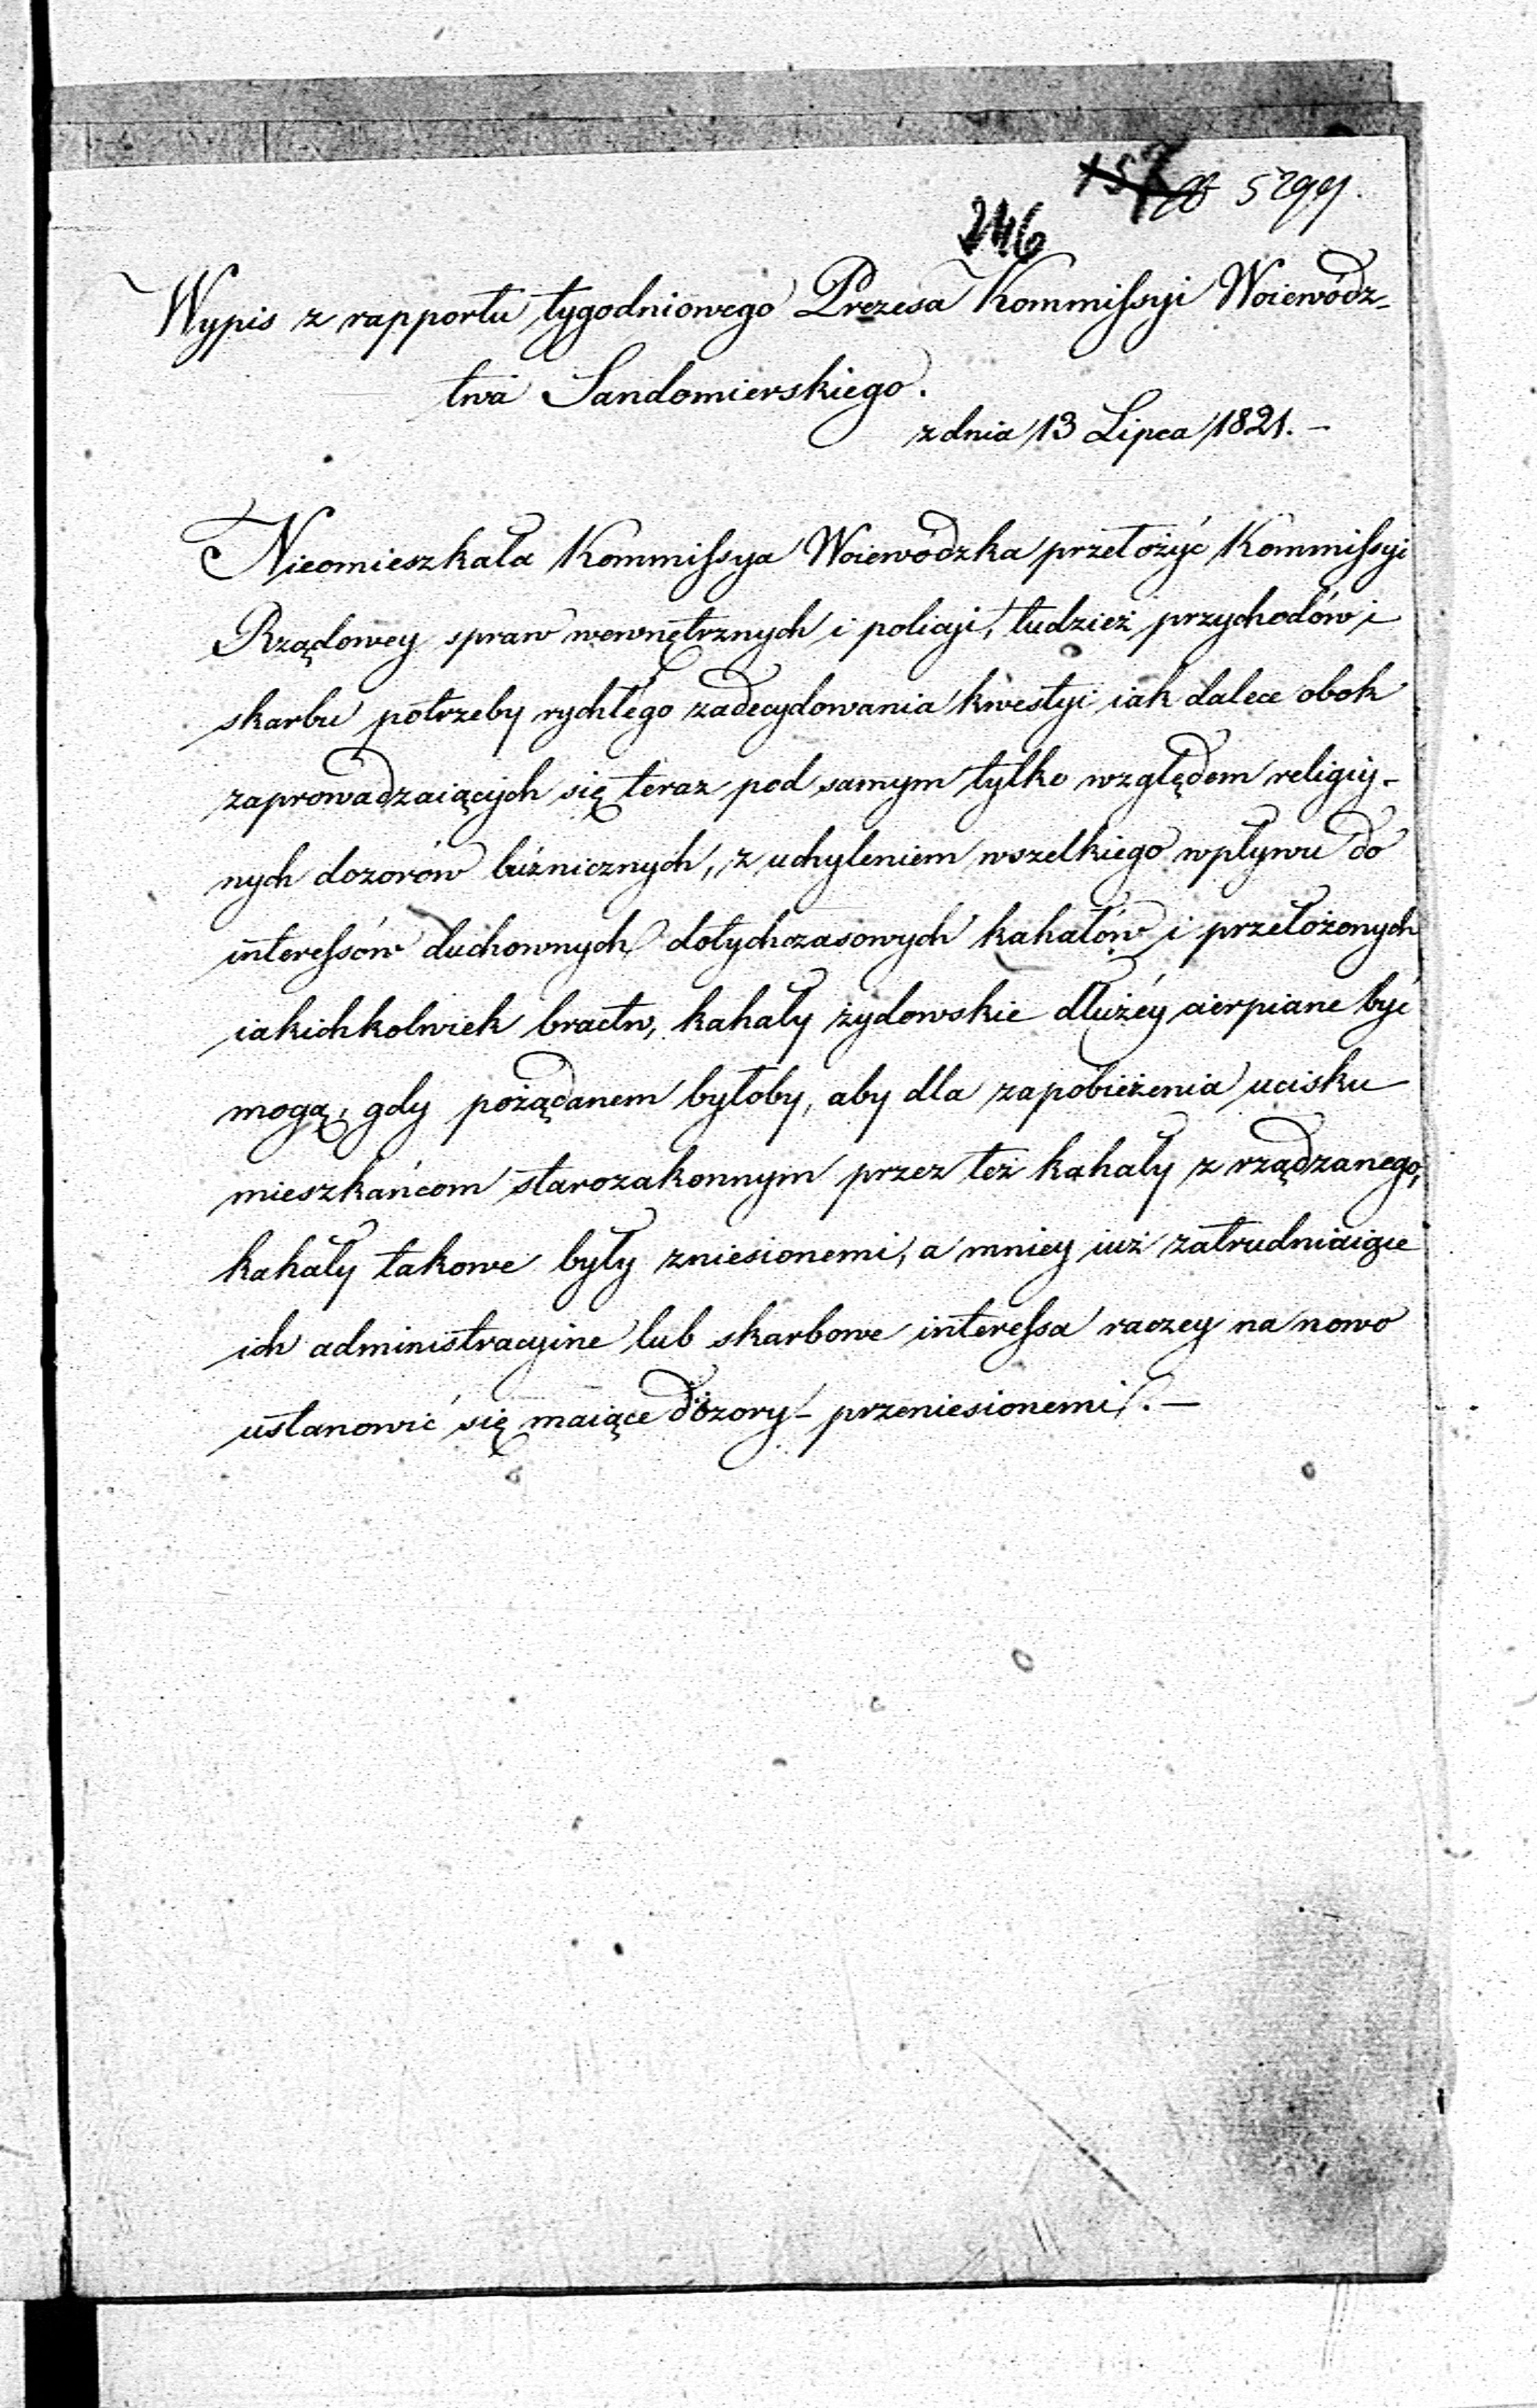 157 № 5299.
246
Wypis z rapportu tygodniowego Prezesa Kommissyi Woiewódz-
twa Sandomierskiego.
z dnia 13 Lipca 1821. –
Nieomieszkała Kommissya Woiewódzka przełożyć Kommissyi
Rządowey spraw wewnętrznych i policyi, tudzież przychodów i
skarbu potrzeby rychłego zadecydowania kwestyi iak dalece obok
zaprowadzaiących się teraz pod samym tylko względem religiy-
nych dozorów bużnicznych, z uchyleniem wszelkiego wpływu do
interessów duchownych dotychczasowych kahałów i przełożonych
iakichkolwiek bractw, kahały żydowskie dłużéy cierpiane być
mogą, gdy pożądanem byłoby, aby dla zapobieżenia ucisku
mieszkańcom starozakonnym przez też kahały zrządzanego,
kahały takowe były zniesionemi, a mniey iuż zatrudniaiące
ich administracyine lub skarbowe interessa raczey na nowo
ustanowić się maiące dozory – przeniesionemi. –